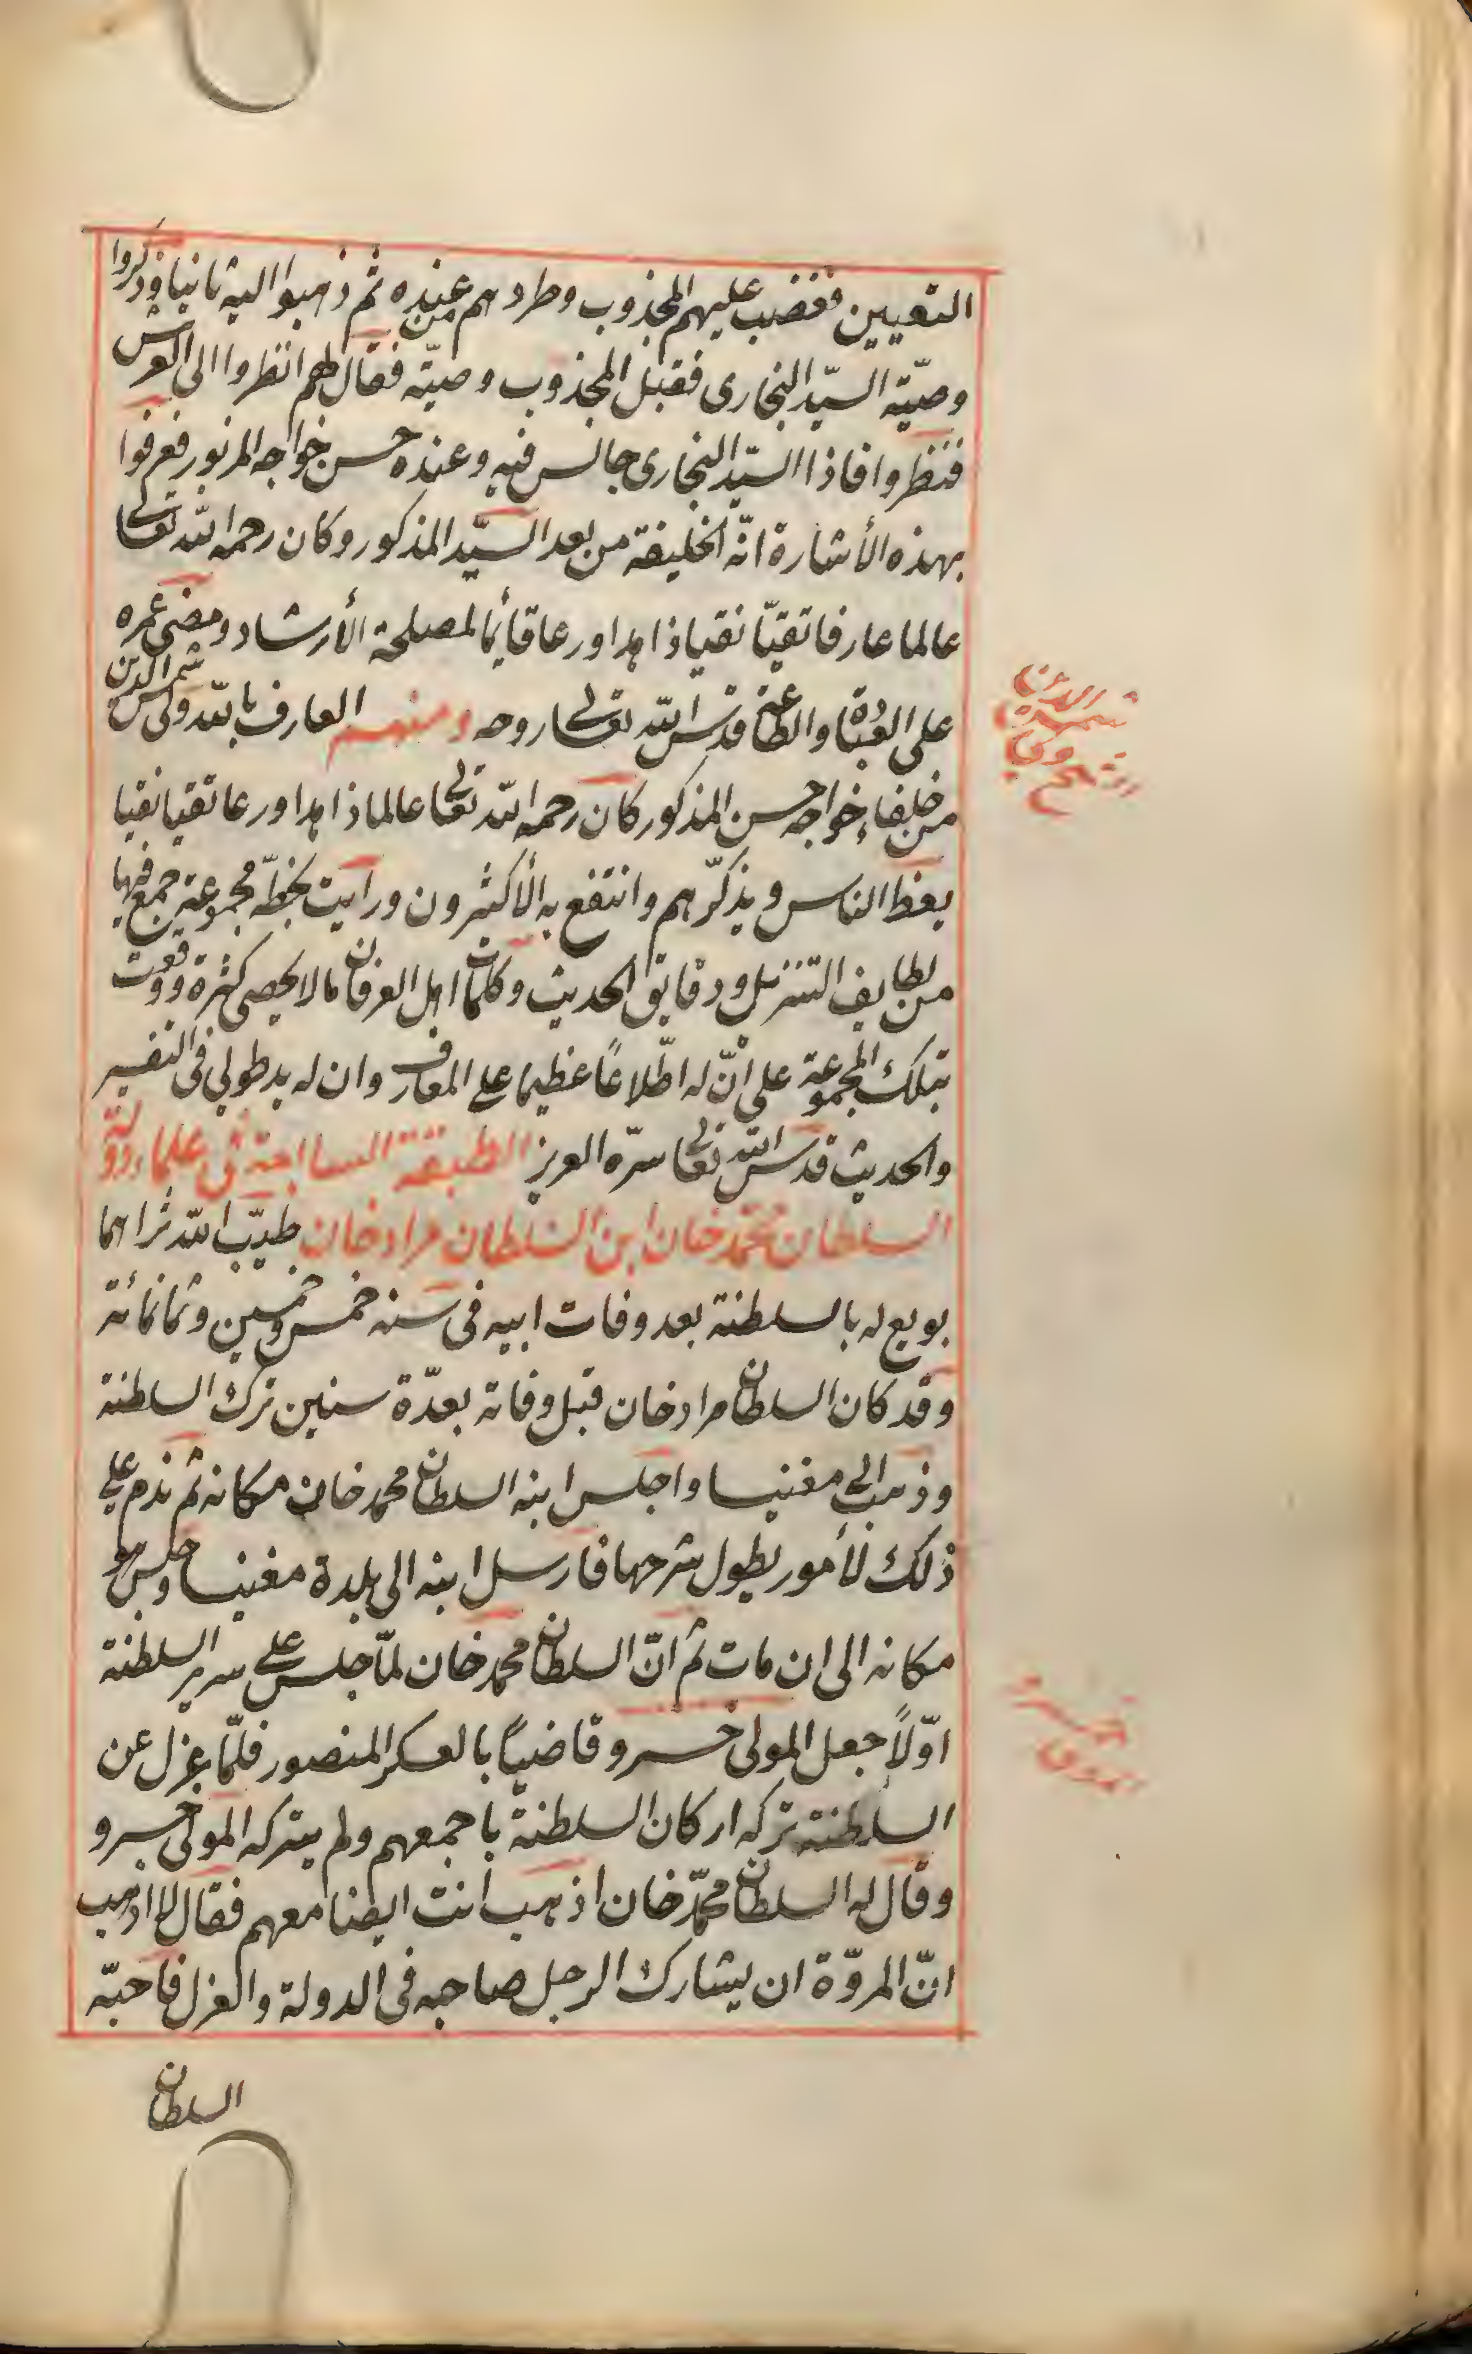 التعيين فغضب عليهم المجذوب وطردهم من عنده ثم ذهبوا اليه ثانيا وذكروا
وصيّة السيّد البخارى فقبل المجذوب وصيته فقال لهم انظروا الى العرش
فنظروا فاذا السيّد البخارى جالس فيه وعنده حسن خواجه المزبور فعرفوا
بهذه الأشارة انّه الخليفة من بعد السيّد المذكور وكان رحمه الله تعالى
عالما عارفا تقيّا نقيا زاهدا ورعا قائما لمصلحة الأرشاد ومضى عمره
على العبادة والطاعة قدس الله تعالى روحه ومنهم العارف بالله ولى شمس الدين
من خلفاء خواجه حسن المذكور كان رحمه الله تعالى عالما زاهدا ورعا تقيا نقيا
يعظ الناس ويذكّرهم وانتفع به الأكثرون ورايت بخطّه مجموعة جمع فيها
من لطايف التنزيل ودقايق الحديث وكلمات اهل العرفان مالا يحصى كثرة ووقفت
بتلك المجموعة على انّ له اطّلاعًا عظيما على المعارف وان له يد طولى فى التفسير
والحديث قدس الله تعالى سرّه العزيز الطبقة السابعة فى علماء دولة
السلطان محمد خان ابن السلطان مراد خان طيّب الله ثراهما
بويع له بالسلطنة بعد وفات ابيه فى سنه خمس وخمسين وثمانمائة
وقد كان السلطان مراد خان قبل وفاته بعدّة سنين ترك السلطنة
وذهب الى مغنيسا واجلس ابنه السلطان محمد خان مكانه ثم ندم على
ذلك لأمور يطول شرحها فارسل ابنه الى بلدة مغنيسا وجلس هو
مكانه الى ان مات ثم انّ السلطان محمد خان لمّا جلس على سرير السلطنة
اوّلاً جعل المولى خسرو قاضيًا بالعسكر المنصور فلمّا عزل عن
السلطنة تركه اركان السلطنة باجمعهم ولم يتركه المولى خسرو
وقال له السلطان محمّد خان اذهب انت ايضا معهم فقال لا اذهب
انّ المروّة ان يشارك الرجل صاحبه فى الدولة والعزل فاحبّه
السلطان
شمس الدين
خسرو